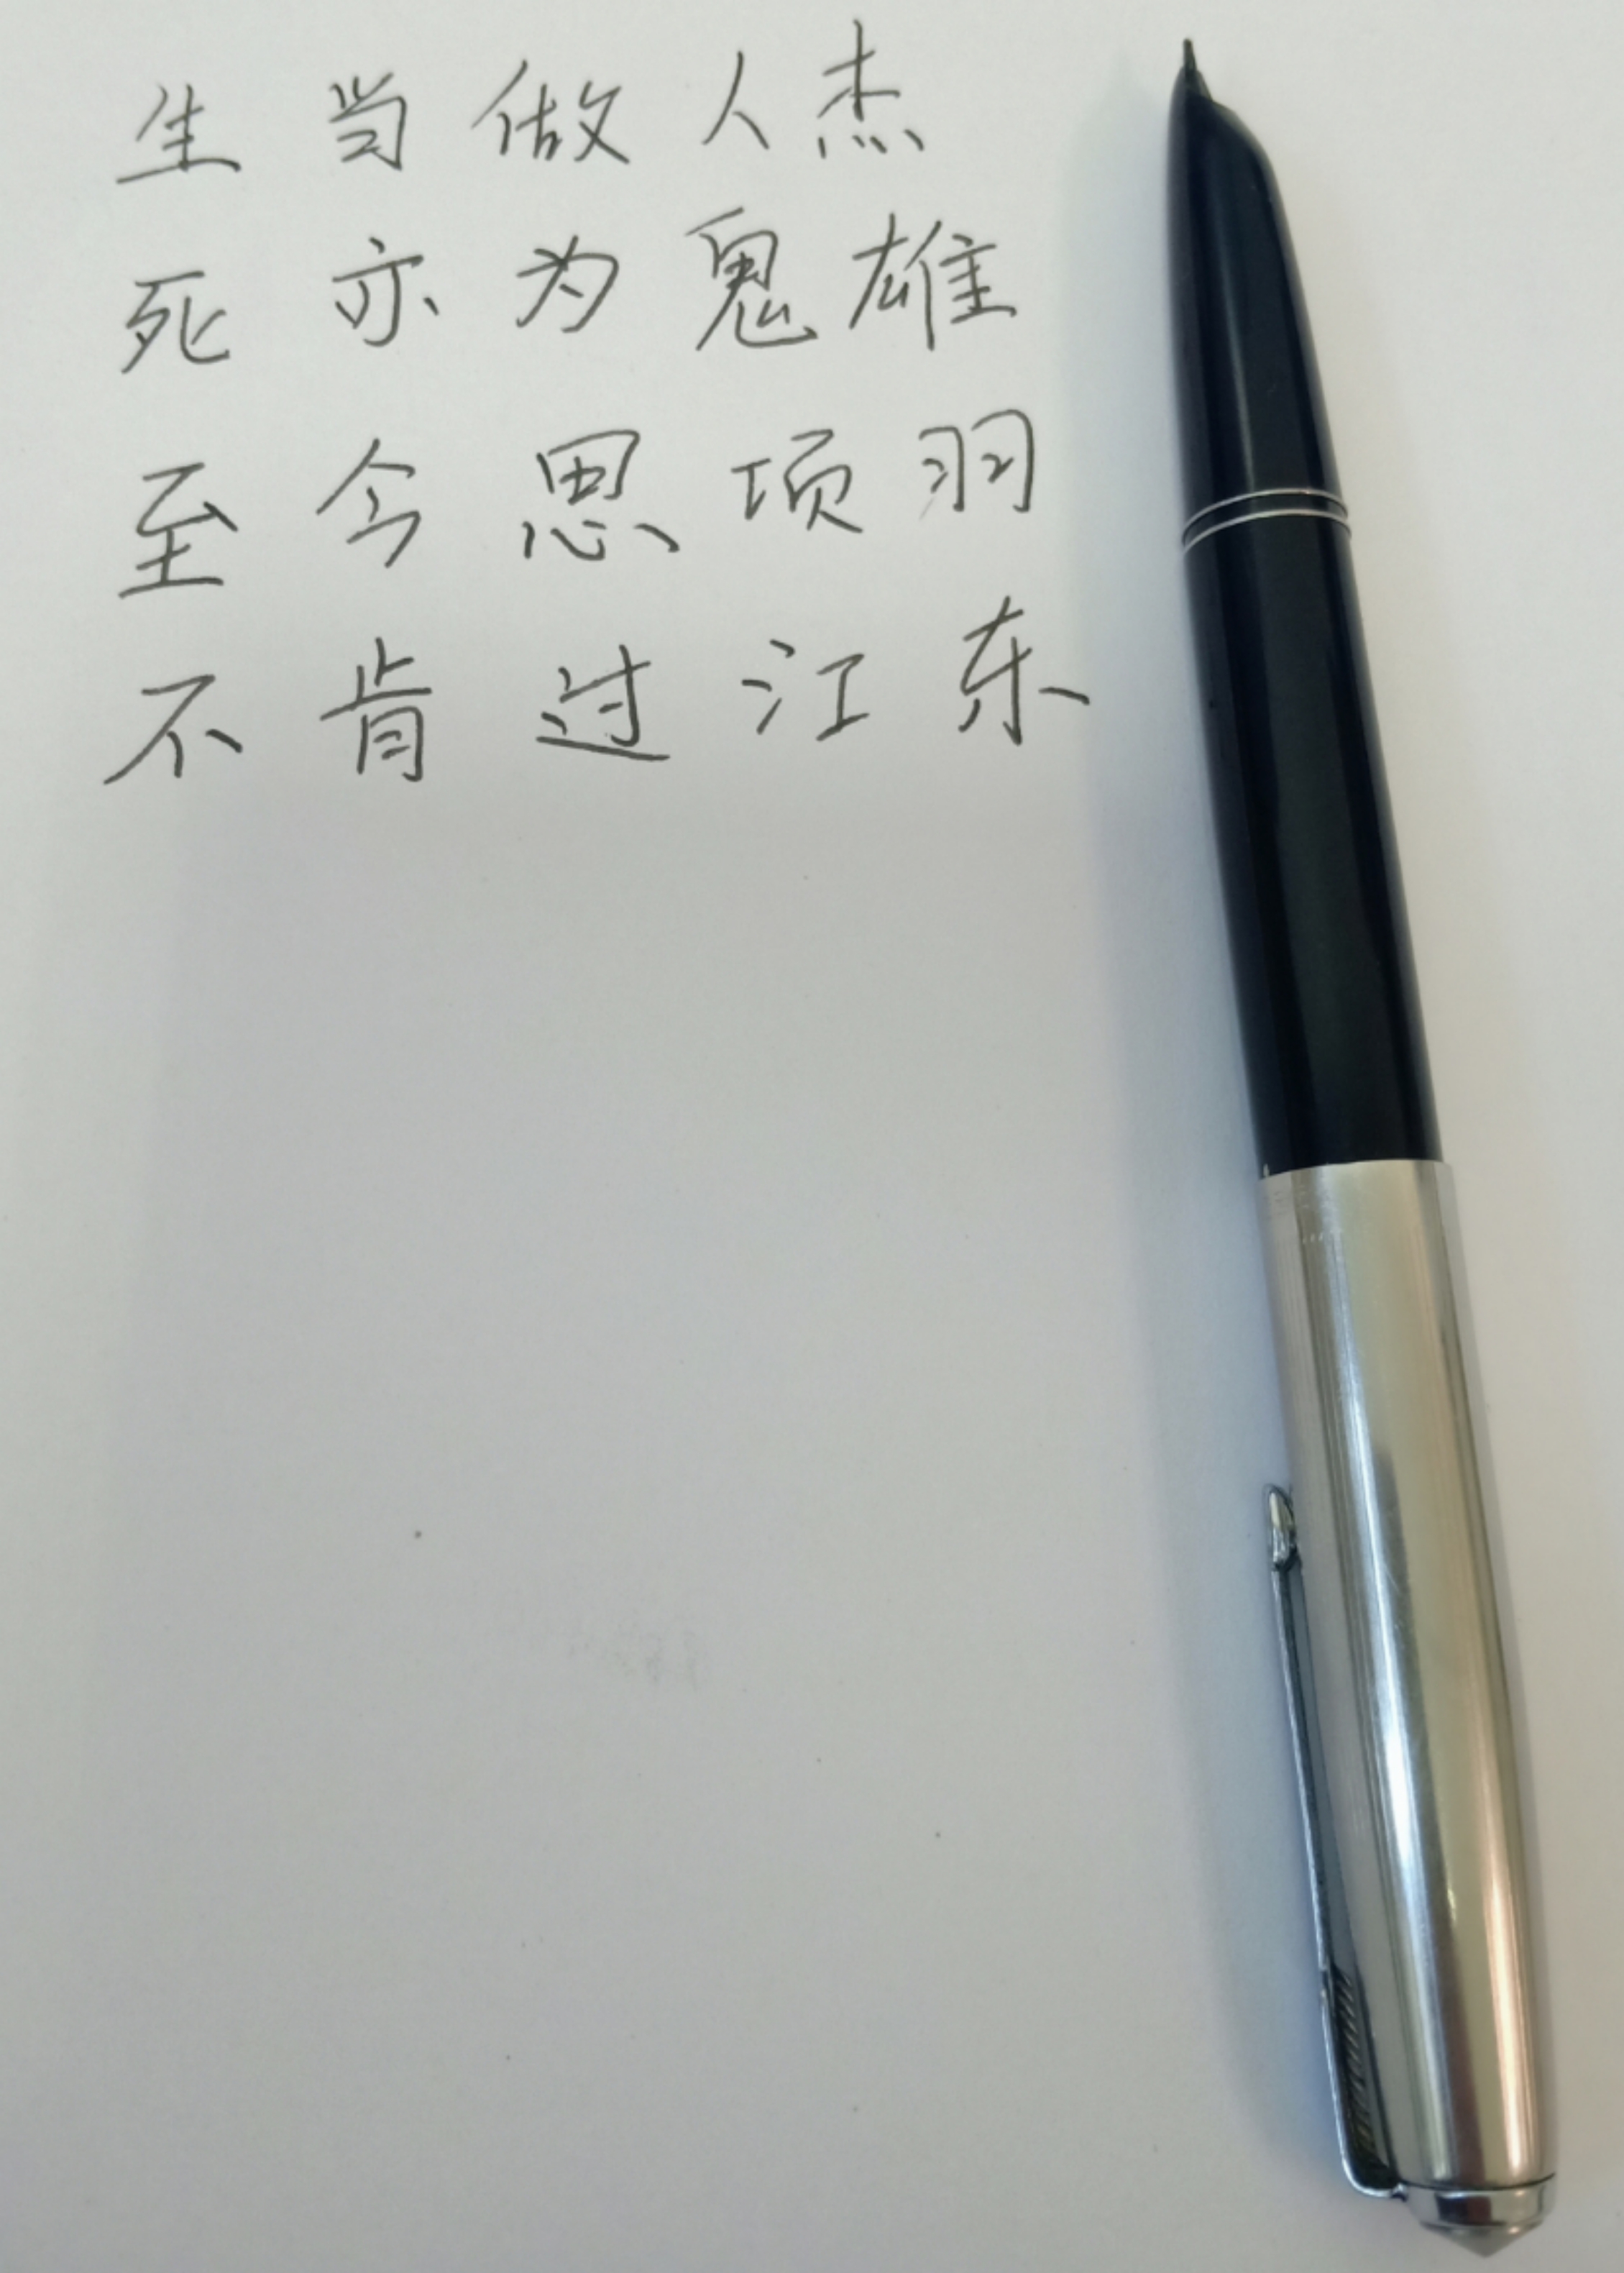 生当做人杰
死亦为鬼雄
至今思项羽
不肯过江东